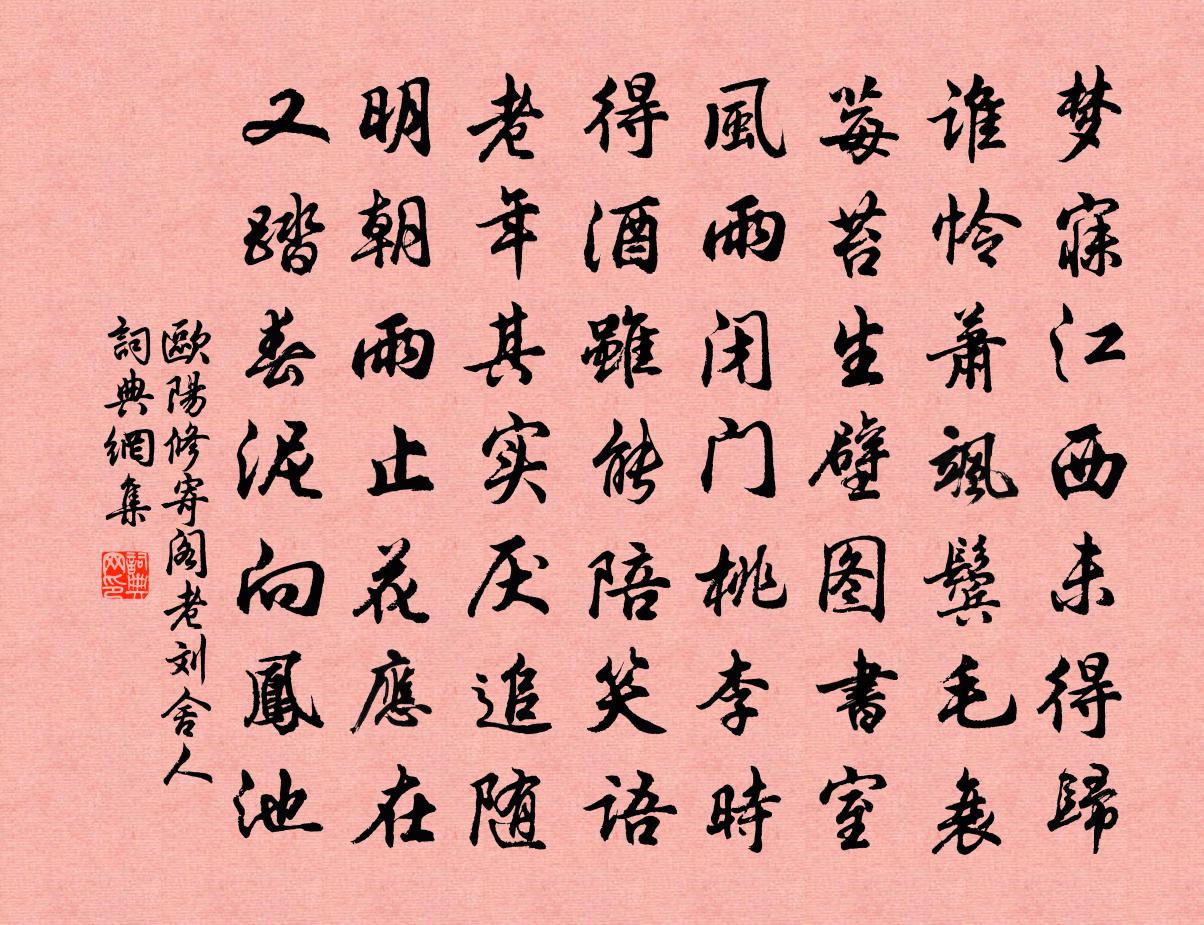 梦寐江西未得歸
谁怜萧颯鬓毛衰
莓苔生壁图書室
風雨闭门桃李時
得酒雖能陪笑语
老年其实厌追随
明朝雨止花應在
又踏春泥向鳳池
歐陽修寄阁老刘舍人
詞典網集
詞典网印